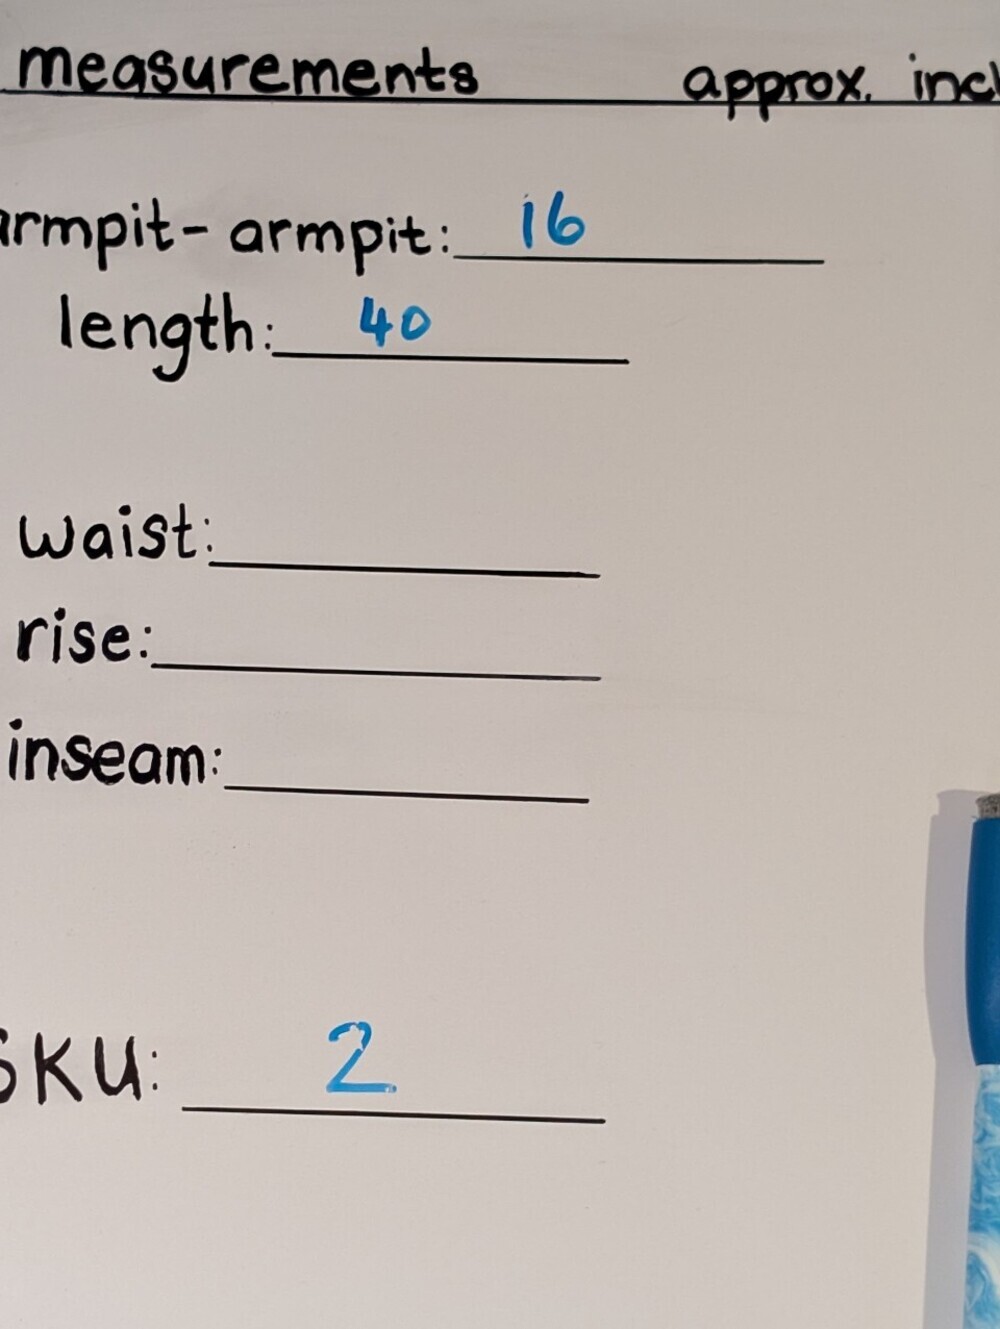 measurements approx. incl
armpit-armpit: 16
length: 40
waist:
rise:
inseam:
SKU: 2